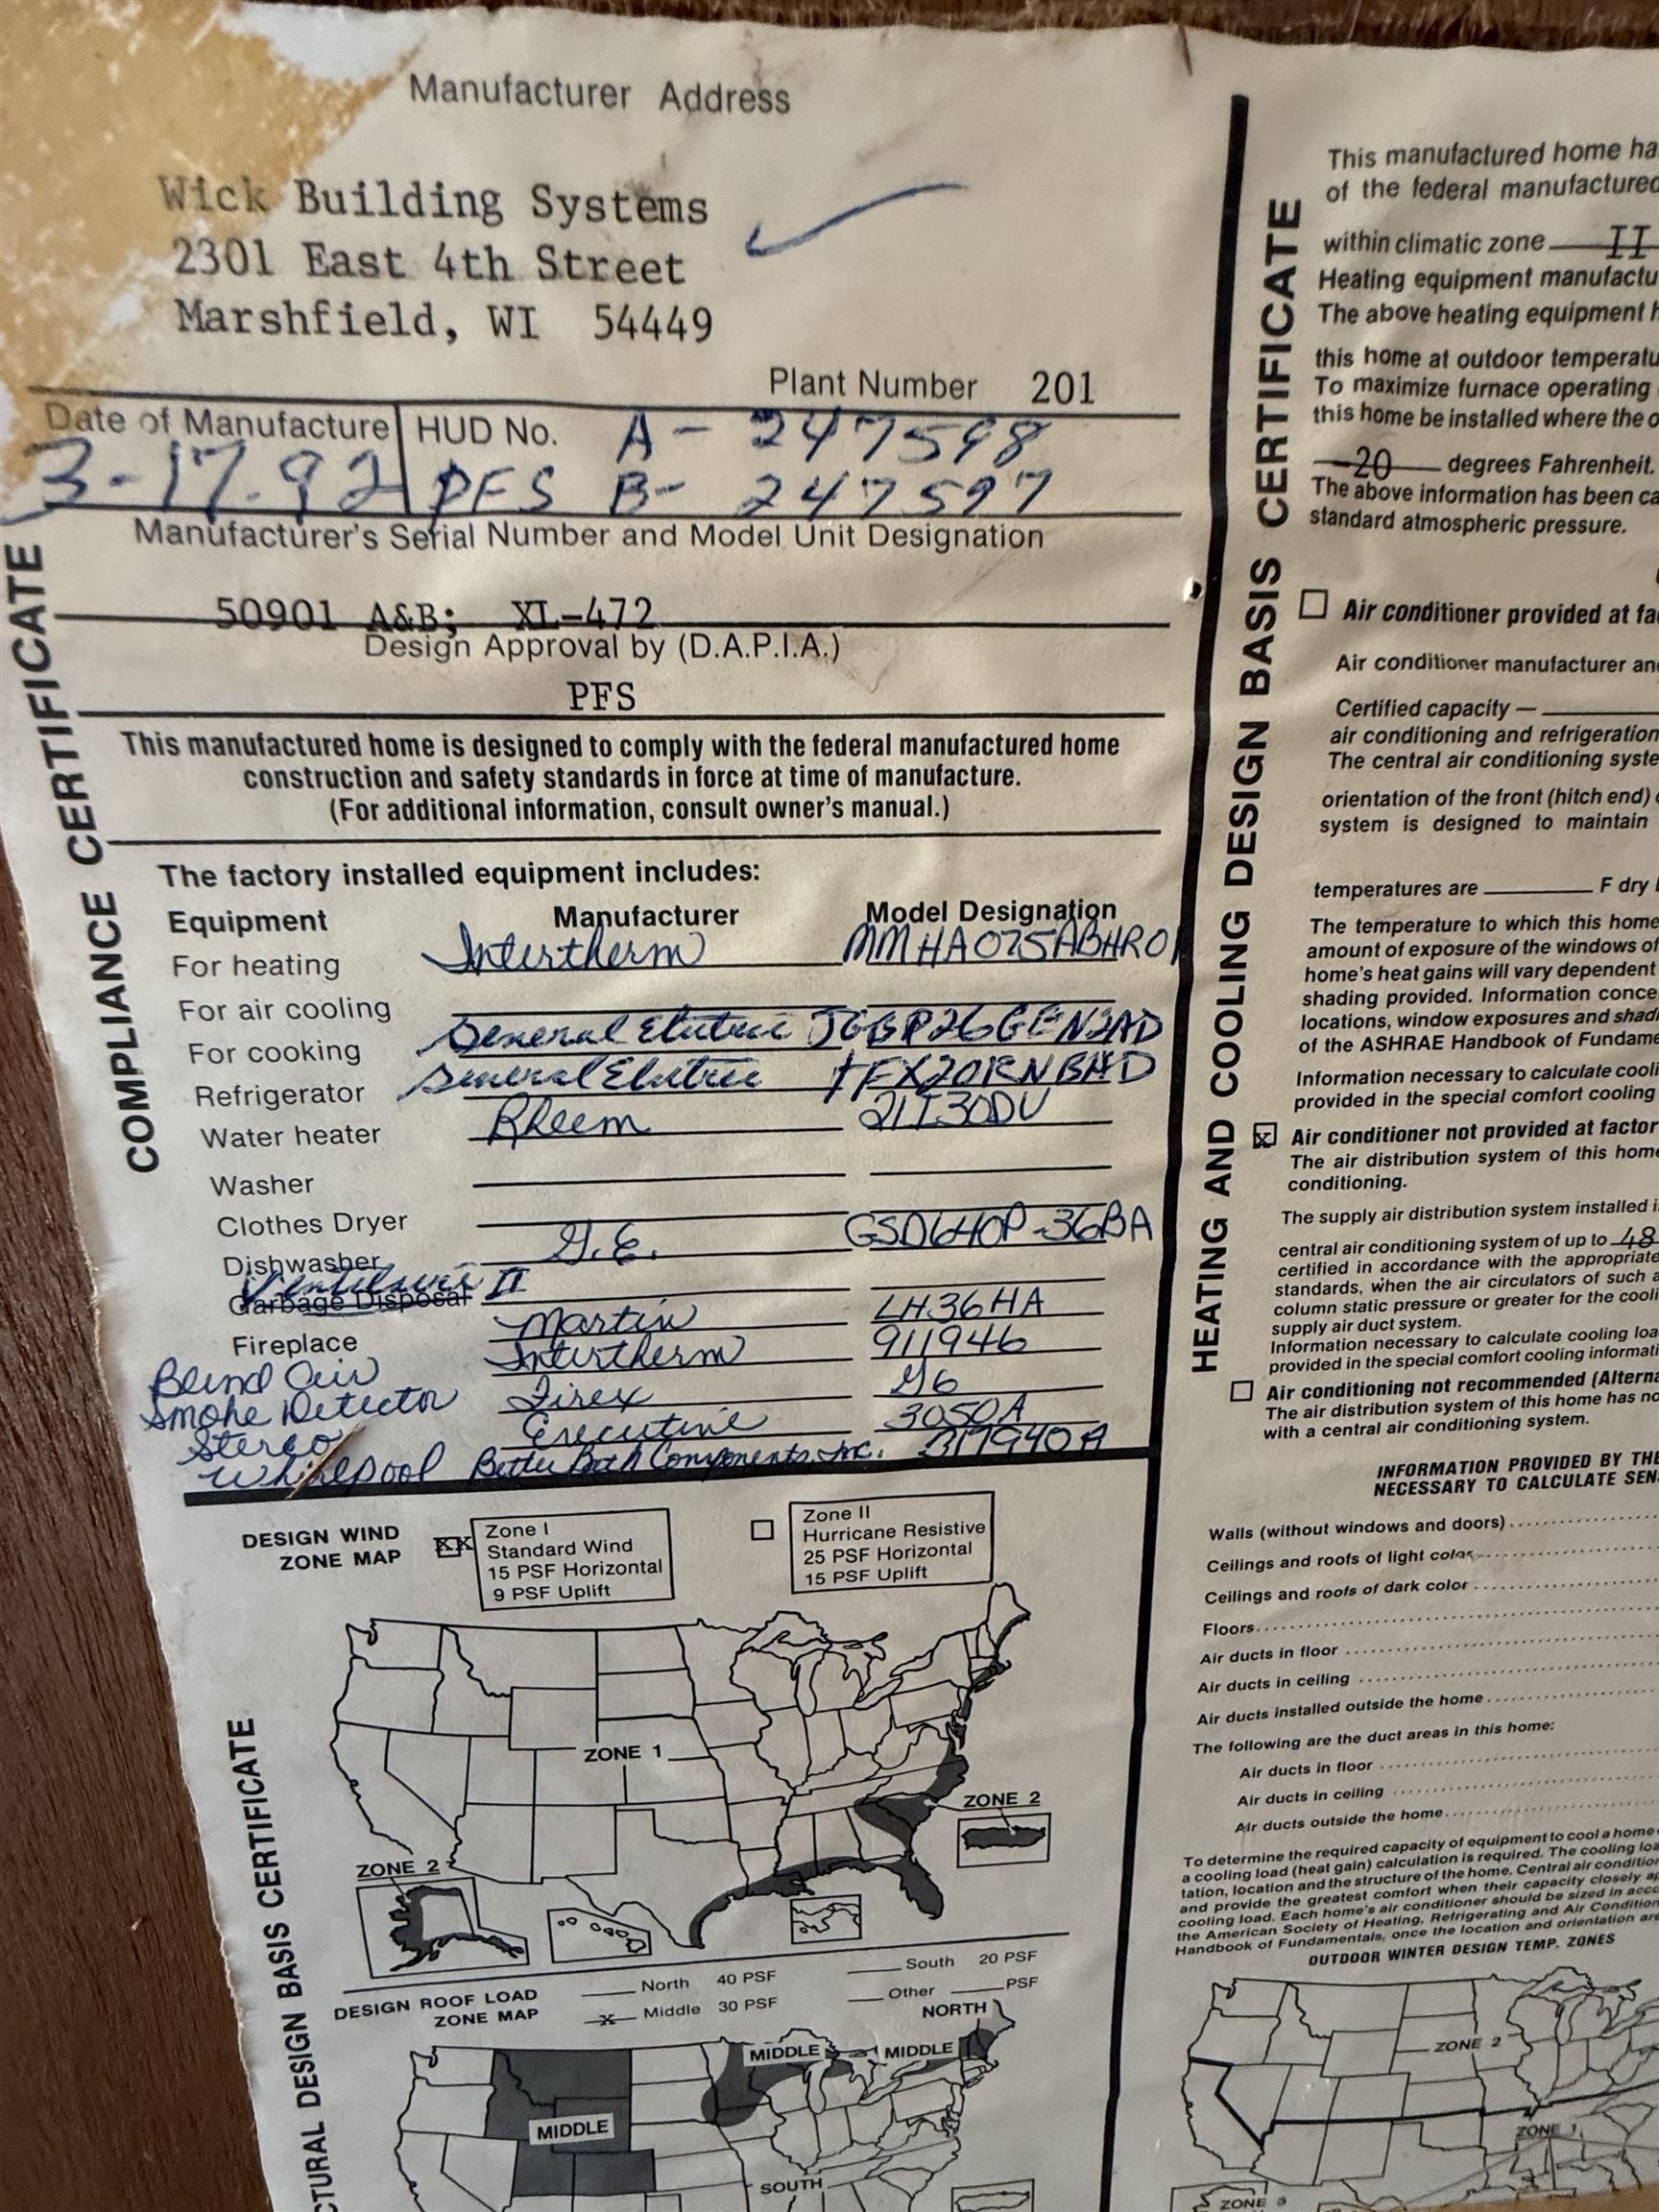 Manufacturer Address
Wick Building Systems
2301 East 4th Street
Marshfield, WI 54449
Plant Number 201
Date of Manufacture HUD No. A- 247598
3-17-92 PFS B- 247597
Manufacturer's Serial Number and Model Unit Designation
50901 A&B; XL-472
Design Approval by (D.A.P.I.A.)
PFS
This manufactured home is designed to comply with the federal manufactured home
construction and safety standards in force at time of manufacture.
(For additional information, consult owner's manual.)
COMPLIANCE CERTIFICATE
The factory installed equipment includes:
Equipment Manufacturer Model Designation
For heating Intertherm MMHA075ABHR01
For air cooling
For cooking General Electric JGBP26GEN2AD
Refrigerator General Electric TFX20RNBHD
Water heater Rheem 21T30DV
Washer
Clothes Dryer
Dishwasher G.E. GSD640P-36BA
Garbage Disposal II
Fireplace Martin LH36HA
Blend Air Intertherm 911946
Smoke Detector Firex G6
Stereo Executive 3050A
Whirlpool Better Bath Components, Inc. 217940A
DESIGN WIND
ZONE MAP
XX Zone I
Standard Wind
15 PSF Horizontal
9 PSF Uplift
Zone II
Hurricane Resistive
25 PSF Horizontal
15 PSF Uplift
ZONE 1
ZONE 2
ZONE 2
DESIGN ROOF LOAD
ZONE MAP
North 40 PSF
X Middle 30 PSF
South 20 PSF
Other PSF
NORTH
MIDDLE
MIDDLE
MIDDLE
SOUTH
CTURAL DESIGN BASIS CERTIFICATE
HEATING AND COOLING DESIGN BASIS CERTIFICATE
This manufactured home ha
of the federal manufactured
within climatic zone II
Heating equipment manufactu
The above heating equipment h
this home at outdoor temperatu
To maximize furnace operating
this home be installed where the o
-20 degrees Fahrenheit.
The above information has been ca
standard atmospheric pressure.
Air conditioner provided at fa
Air conditioner manufacturer an
Certified capacity —
air conditioning and refrigeration
The central air conditioning syste
orientation of the front (hitch end)
system is designed to maintain
temperatures are F dry
The temperature to which this home
amount of exposure of the windows of
home's heat gains will vary dependent
shading provided. Information conce
locations, window exposures and shadi
of the ASHRAE Handbook of Fundame
Information necessary to calculate cooli
provided in the special comfort cooling
X Air conditioner not provided at factor
The air distribution system of this home
conditioning.
The supply air distribution system installed i
central air conditioning system of up to 48
certified in accordance with the appropriate
standards, when the air circulators of such a
column static pressure or greater for the cooli
supply air duct system.
Information necessary to calculate cooling loa
provided in the special comfort cooling informati
Air conditioning not recommended (Alterna
The air distribution system of this home has no
with a central air conditioning system.
INFORMATION PROVIDED BY THE
NECESSARY TO CALCULATE SEN
Walls (without windows and doors)
Ceilings and roofs of light color
Ceilings and roofs of dark color
Floors
Air ducts in floor
Air ducts in ceiling
Air ducts installed outside the home
The following are the duct areas in this home:
Air ducts in floor
Air ducts in ceiling
Air ducts outside the home
To determine the required capacity of equipment to cool a home
a cooling load (heat gain) calculation is required. The cooling loa
tation, location and the structure of the home. Central air condition
and provide the greatest comfort when their capacity closely ap
cooling load. Each home's air conditioner should be sized in acco
the American Society of Heating, Refrigerating and Air Condition
Handbook of Fundamentals, once the location and orientation are
OUTDOOR WINTER DESIGN TEMP. ZONES
ZONE 2
ZONE 1
ZONE 3